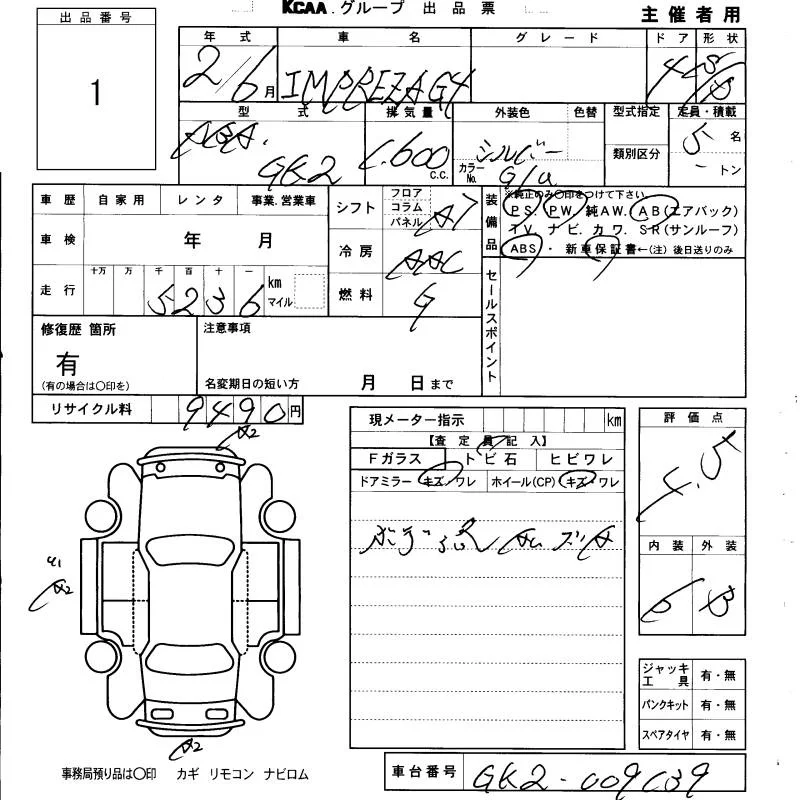 KCAA.グループ 出品票
主催者用
出品番号
1
年式 車名 グレード ドア 形状
2/6月 IMPREZA G4 4
型式 排気量 外装色 色替 型式指定 定員・積載
GK2 1,600 c.c. シルバー 類別区分 5名
カラーNo. G1U トン
車歴 自家用 レンタ 事業.営業車
車検 年 月
走行 十万 万 千 百 十 一 km マイル
5236
シフト フロア コラム パネル AT
冷房 AAC
燃料 G
装備品 ※純正のみ○印をつけて下さい
PS. PW. 純AW. AB(エアバック)
TV. ナビ. カワ. SR(サンルーフ)
ABS ・ 新車保証書←(注)後日送りのみ
セールスポイント
修復歴 箇所
有
(有の場合は○印を)
注意事項
名変期日の短い方 月 日まで
リサイクル料 9490円
A2
現メーター指示 km
【査定員記入】
Fガラス トビ石 ヒビワレ
ドアミラー キズ・ワレ ホイール(CP) キズ・ワレ
評価点
4.5
内装 外装
B
U1
A2
A2
ジャッキ工具 有・無
パンクキット 有・無
スペアタイヤ 有・無
事務局預り品は○印 カギ リモコン ナビロム
車台番号 GK2-009039